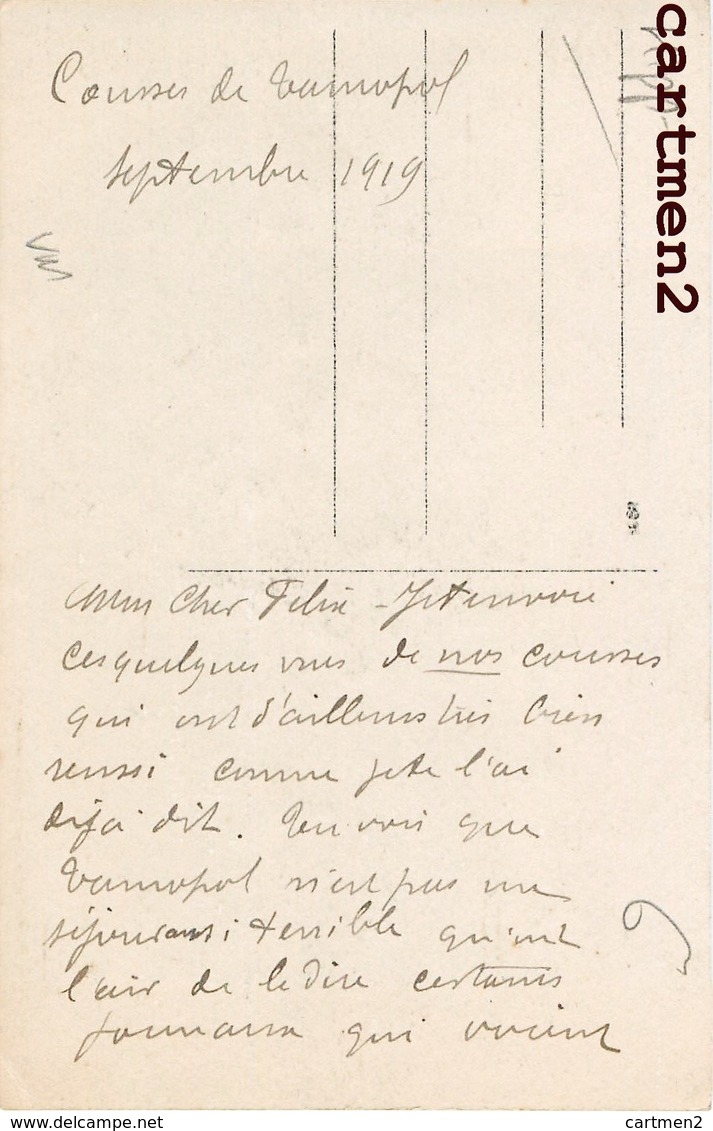 Courses de Tarnopol
septembre 1919
Mon cher Felix - Je t'envoie
ces quelques vues de nos courses
qui ont d'ailleurs très bien
reussi comme je te l'ai
déjà dit. Tu vois que
Tarnopol n'est pas un
séjour aussi terrible qu'ont
l'air de le dire certains
journaux qui voient
cartmen2
cartmen2